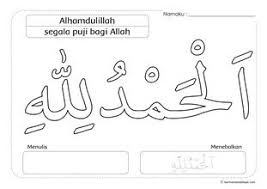 Namaku :
Alhamdulillah
segala puji bagi Allah
اَلْحَمْدُ لِلّٰهِ
Menulis
Menebalkan
اَلْحَمْدُ لِلّٰهِ